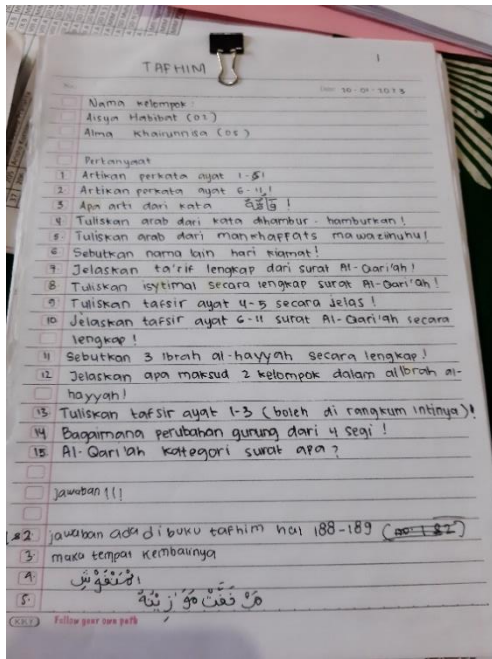 1
TAFHIM
No.
Date 30-01-2023
Nama kelompok :
Aisya Habibat (02)
Alma Khairunnisa (05)
Pertanyaat
1 Artikan perkata ayat 1-5!
2 Artikan perkata ayat 6-11!
3 Apa arti dari kata !
4. Tuliskan arab dari kata dihambur-hamburkan!
5. Tuliskan arab dari man khaffats mawaziinuhu!
6 Sebutkan nama lain hari kiamat!
7. Jelaskan ta'rif lengkap dari surat Al-Qari'ah!
8 Tuliskan isytimal secara lengkap surat Al-Qari'ah!
9 Tuliskan tafsir ayat 4-5 secara jelas!
10 Jelaskan tafsir ayat 6-11 surat Al-Qari'ah secara
lengkap!
11 Sebutkan 3 Ibrah al-hayyah secara lengkap!
12 Jelaskan apa maksud 2 kelompok dalam al Ibrah al-
hayyah!
13 Tuliskan tafsir ayat 1-3 (boleh di rangkum intinya)!
14 Bagaimana perubahan gunung dari 4 segi!
15 Al-Qari'ah kategori surat apa?
Jawaban !!!
1 & 2. jawaban ada di buku tafhim hal 188-189
3. maka tempat kembalinya
4. الْمَنْفُوْشِ
5.
Follow your own path